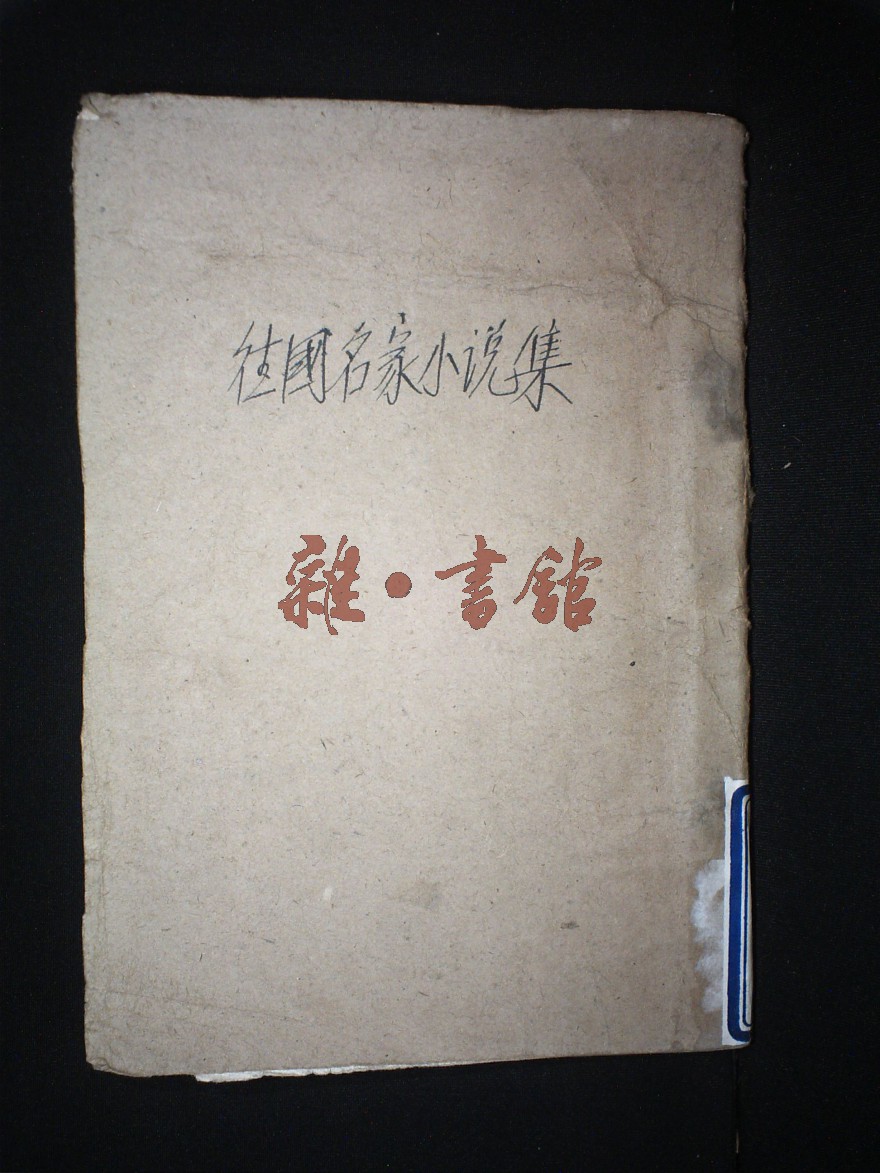 德國名家小说集
雜·書館